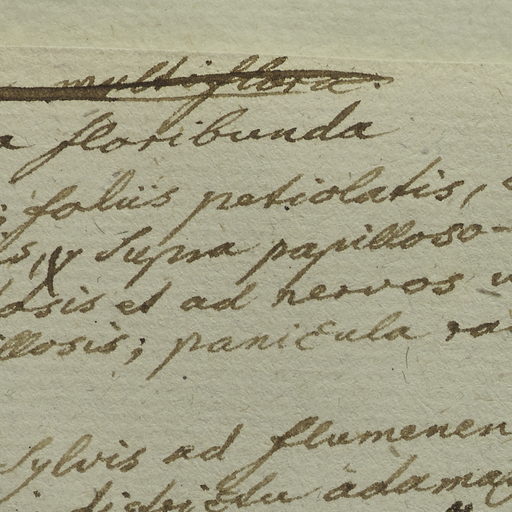 multiflora.
a floribunda
foliis petiolatis,
supra papilloso-
losis et ad nervos
illosis; panicula ra
sylvis ad flumenen
districtu adamay